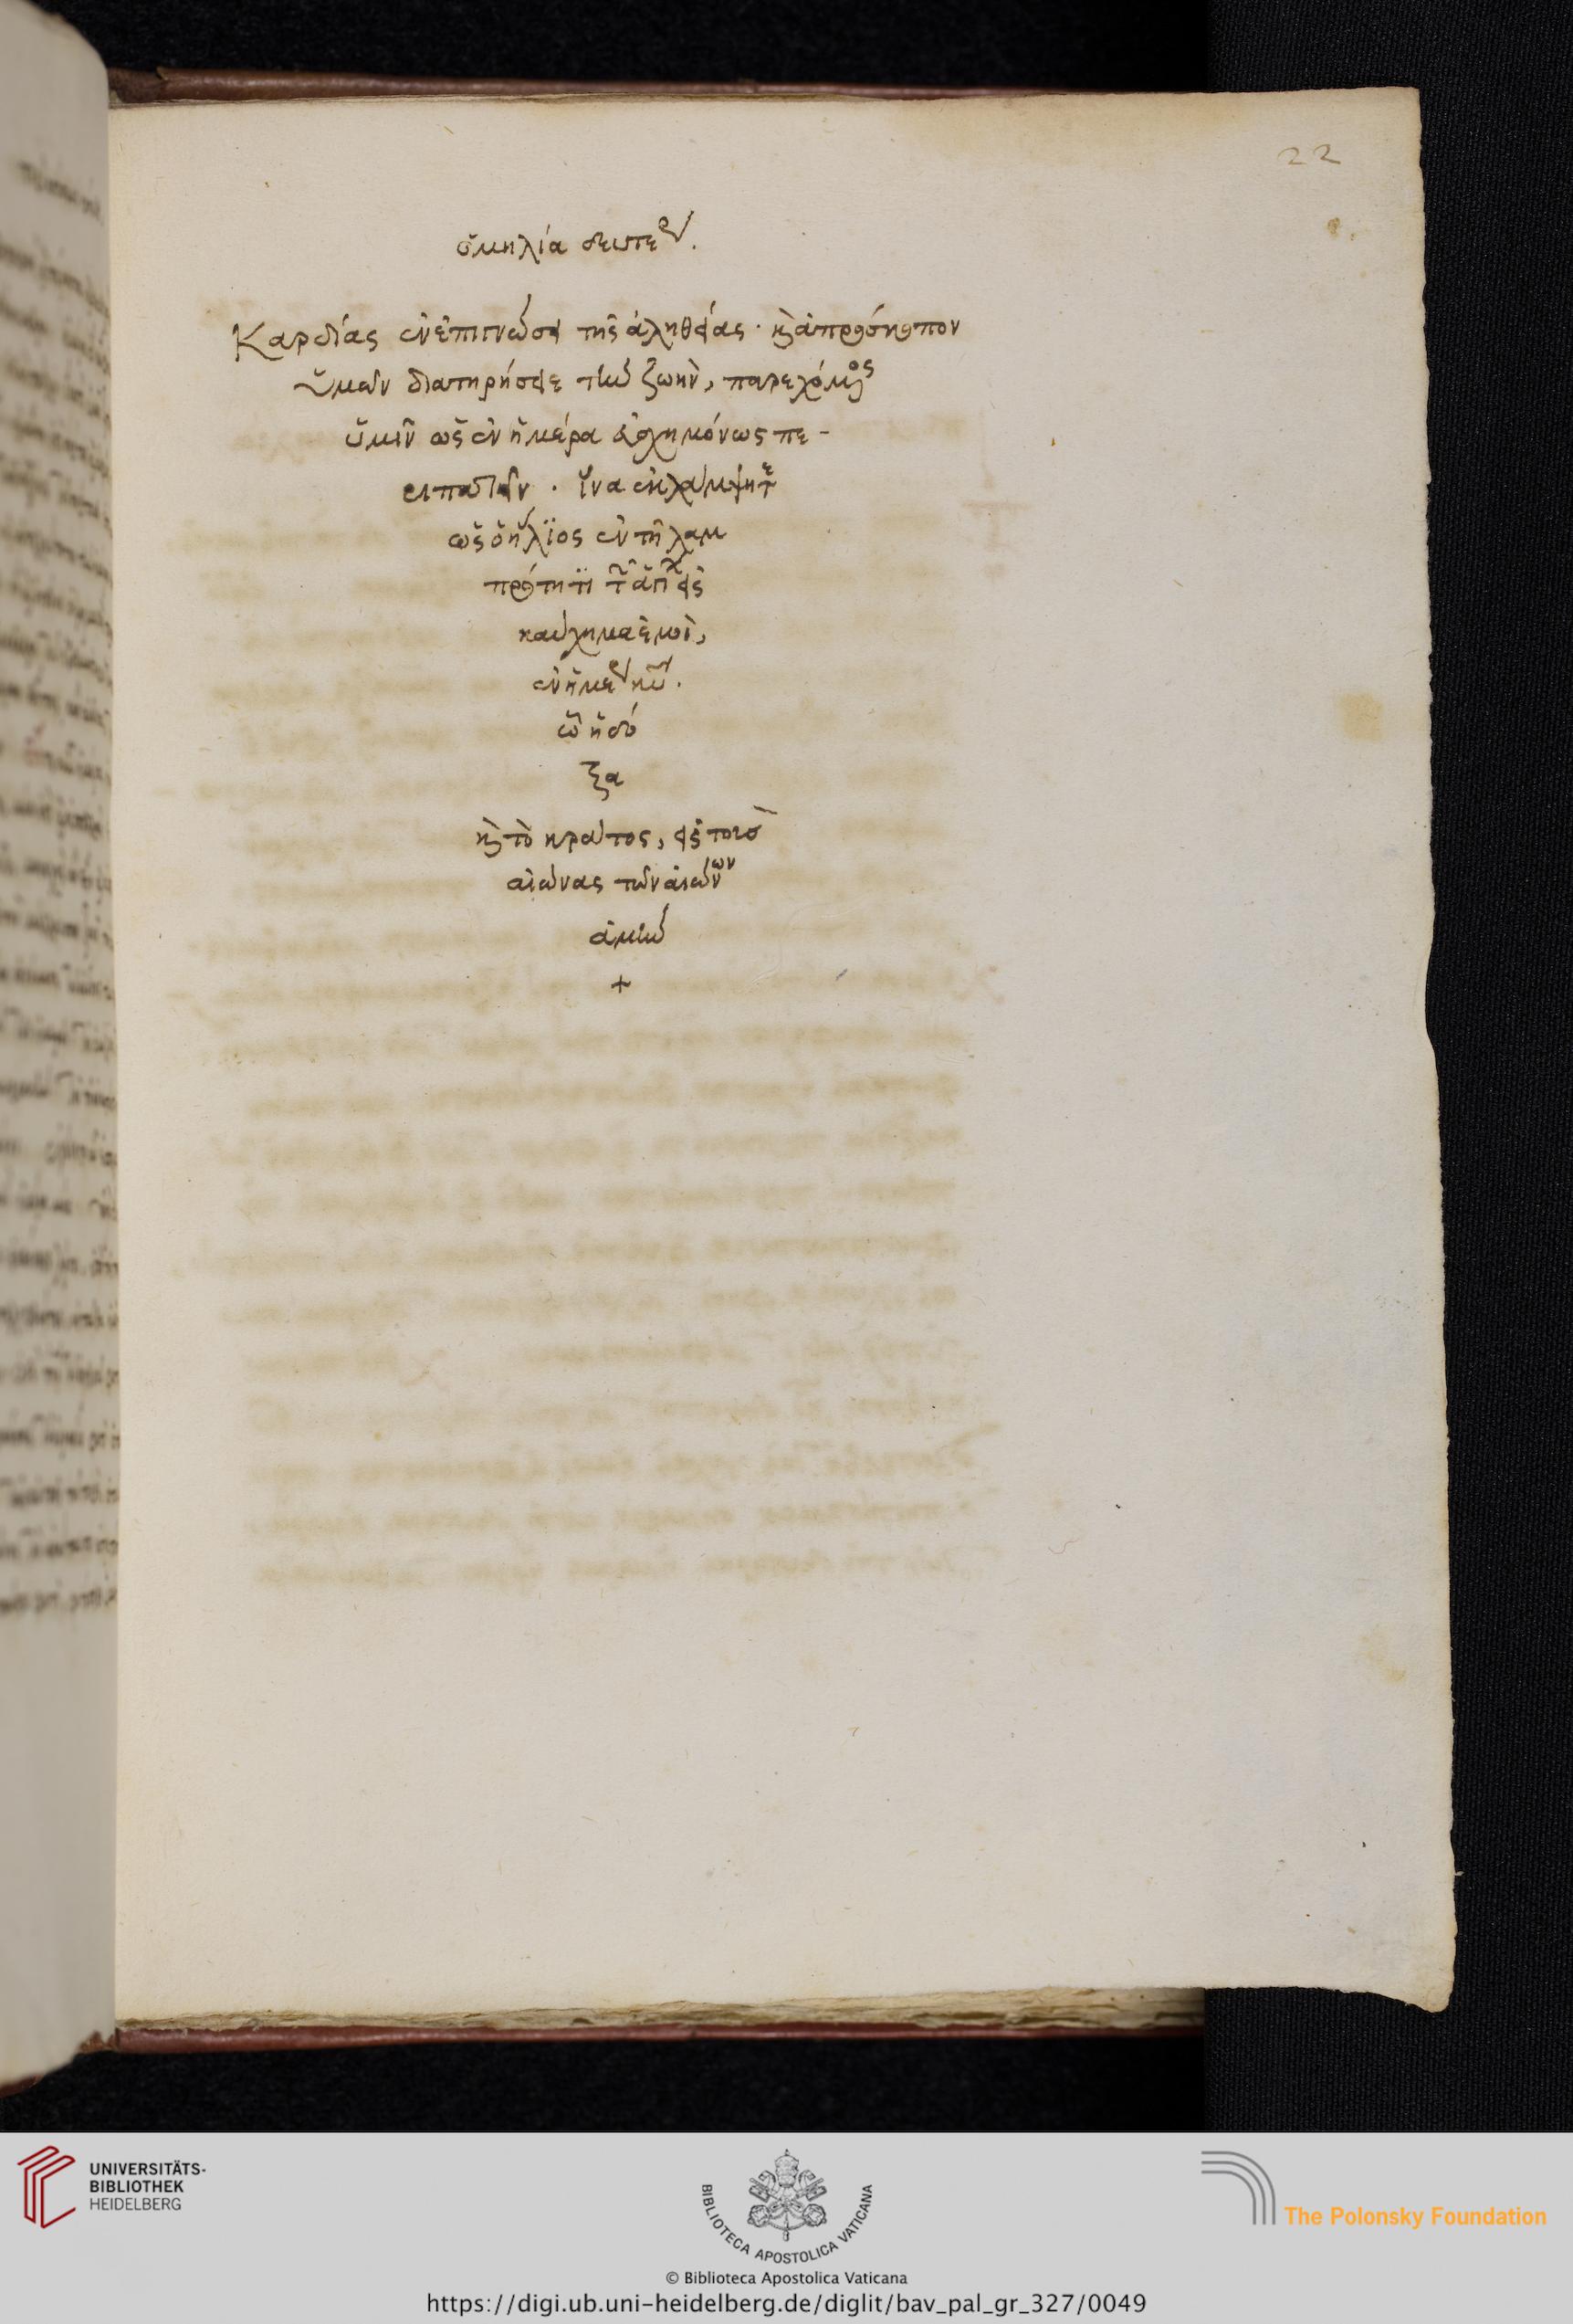 22
ὁμηλία δευτερ
Καρδίας ἐν ἐπιγνώσει τῆς ἀληθείας · καὶ ἀπρόσκοπον
ὑμῶν διατηρήσειε τὴν ζωὴν, παρεχόμενος
ὑμῖν ὡς ἐν ἡμέρα εὐσχημόνως πε-
ριπατεῖν · ἵνα ἐκλάμψητε
ὡς ὁ ἥλϊος ἐν τῆ λαμ
πρότητι τ εἰς
καύχημα ἐμοὶ,
ἐν ἡμερ
ὧ ἡ δό
ξα
καὶ τὸ κράτος, εἰς τοὺσ
αἰώνας τῶν αἰώνων
ἀμήν
+
UNIVERSITÄTS-
BIBLIOTHEK
HEIDELBERG
BIBLIOTECA APOSTOLICA VATICANA
The Polonsky Foundation
© Biblioteca Apostolica Vaticana
https://digi.ub.uni-heidelberg.de/diglit/bav_pal_gr_327/0049